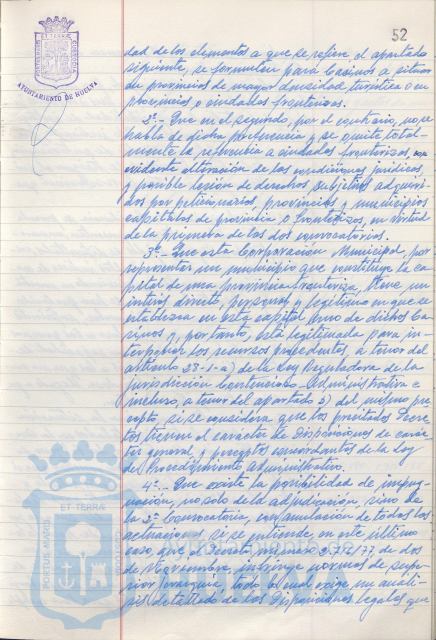 52
AYUNTAMIENTO DE HUELVA
dad de los elementos a que se refiere el apartado
siguiente, se formulen para Casinos a situar
en provincias de mayor densidad turística o en
provincias o ciudades fronterizas.
2º.- Que en el segundo, por el contrario, no se
habla de dicha preferencia y se omite total-
mente la referencia a ciudades fronterizas, con
evidente alteración de las condiciones jurídicas,
y posible lesión de derechos subjetivos adquiri-
dos por peticionarios, provincias y municipios
capitales de provincia o fronterizos, en virtud
de la primera de las dos convocatorias.
3º.- Que esta Corporación Municipal, por
representar un municipio que constituye la ca-
pital de una provincia fronteriza, tiene un
interés directo, personal y legítimo en que se
establezca en esta capital uno de dichos Ca-
sinos y, por tanto, está legitimada para in-
terponer los recursos procedentes, a tenor del
artículo 28-1-a) de la Ley Reguladora de la
Jurisdicción Contencioso-Administrativa e
incluso, a tenor del apartado b) del mismo pre-
cepto, si se considera que los precitados Decre-
tos tienen el carácter de Disposiciones de carác-
ter general, y preceptos concordantes de la Ley
del Procedimiento Administrativo.
4º.- Que existe la posibilidad de impug-
nación, no solo de la adjudicación, sino de
la 2ª Convocatoria, con anulación de todas las
actuaciones, si se entiende en este último
caso, que el Decreto número de dos
de Noviembre, infringe normas de supe-
rior jerarquía, todo lo cual exige un análi-
sis detallado de las Disposiciones legales que
ET TERRÆ
PORTUS MARIS
CUSTODIA